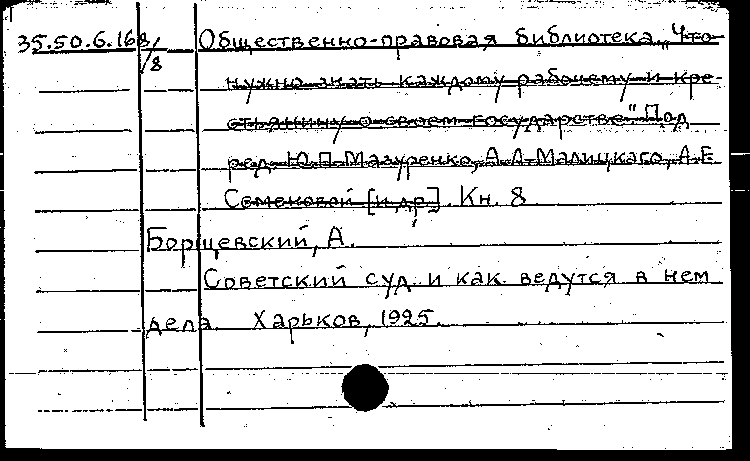 35.50.6.168/8 Общественно-правовая библиотека „Что
нужно знать каждому рабочему и кре-
стьянину о своем государстве" Под
ред. Ю.П. Мазуренко, А.Л. Малицкаго, А.Е
Семеновой [и др]. Кн. 8
Борщевский, А.
Советский суд и как ведутся в нем
дела. Харьков, 1925.